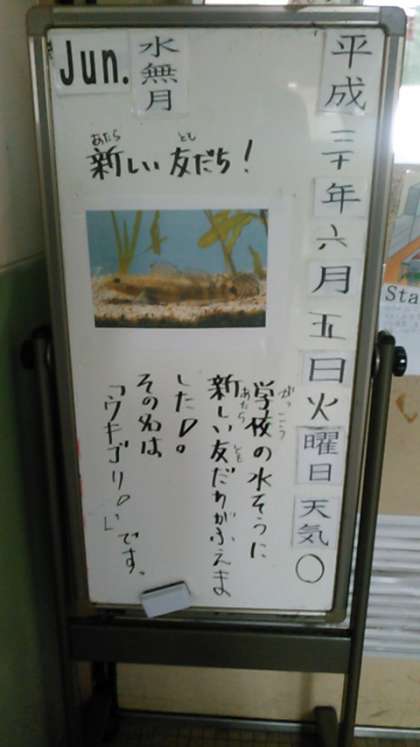 平成三十年六月五日火曜日天気○
Jun.
水無月
あたら とも
新しい友だち!
がっこう
学校の水そうに
あたら とも
新しい友だちがふえま
した。
その名は
「ウキゴリ」です。
Sta